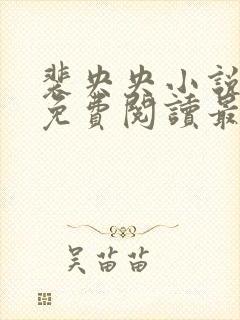 裴央央小說
免費閱讀最
吴苗苗